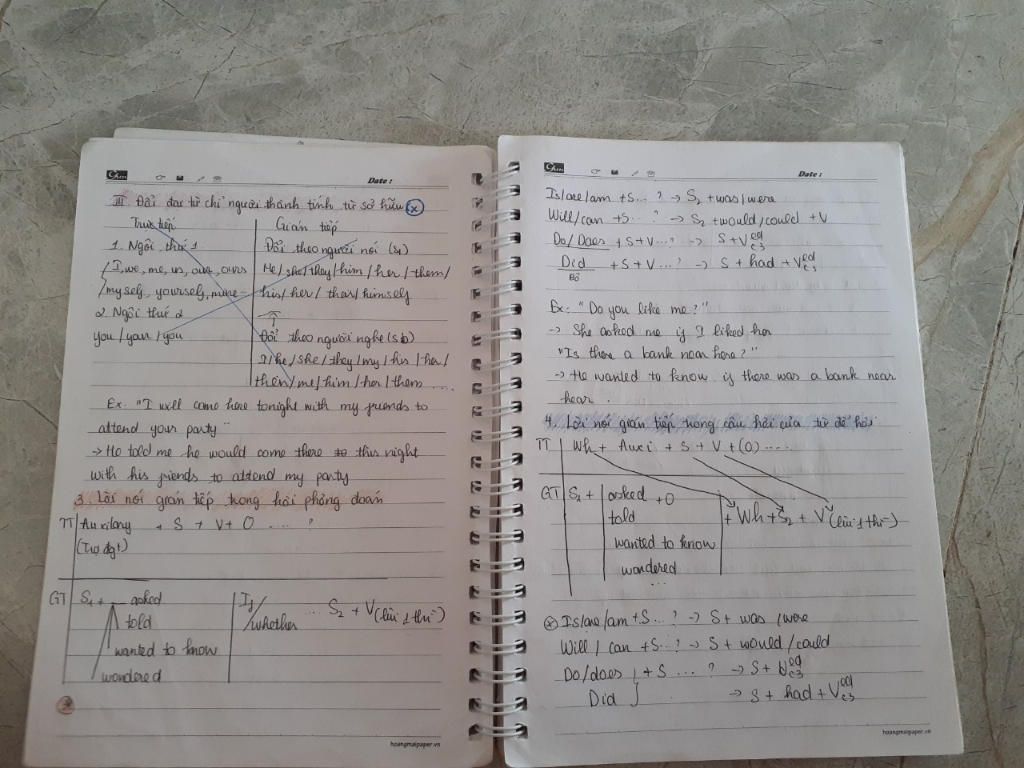 Date :
III Đổi đại từ chỉ người thành tính từ sở hữu (x)
Trực tiếp Gián tiếp
1. Ngôi thứ 1 Đổi theo người nói (S1)
I, we, me, us, our, ours He/she/they/him/her/them/
/myself, yourself, mine his/her/their/himself
2. Ngôi thứ 2
you/your/you Đổi theo người nghe (Sb)
I/he/she/they/my/his/her/
their/me/him/her/them ....
Ex: "I will come here tonight with my friends to
attend your party"
→ He told me he would come there this night
with his friends to attend my party
3. Lời nói gián tiếp trong hỏi phỏng đoán
TT Auxilary + S + V + O ..... ?
(Trợ đgt)
GT S1 + asked If/ ... S2 + V (lùi 1 thì)
told whether
wanted to know
wondered
hoangmaipaper.vn
Date :
Is/are/am + S... ? → S2 + was/were
Will/can + S... ? → S2 + would/could + V
Do/Does + S + V...? → S + V ed c3
Did + S + V ...? → S + had + V ed c3
Bỏ
Ex: "Do you like me?"
→ She asked me if I liked her
"Is there a bank near here?"
→ He wanted to know if there was a bank near
hear.
4. Lời nói gián tiếp trong câu hỏi của từ để hỏi
TT Wh + Auxi + S + V + (O) ....
GT S1 + asked + O + Wh + S2 + V (lùi 1 thì)
told
wanted to know
wondered
...
(x) Is/are/am + S...? → S + was/were
Will/can + S...? → S + would/could
Do/does + S ....? → S + V ed c3
Did → S + had + V ed c3
hoangmaipaper.vn